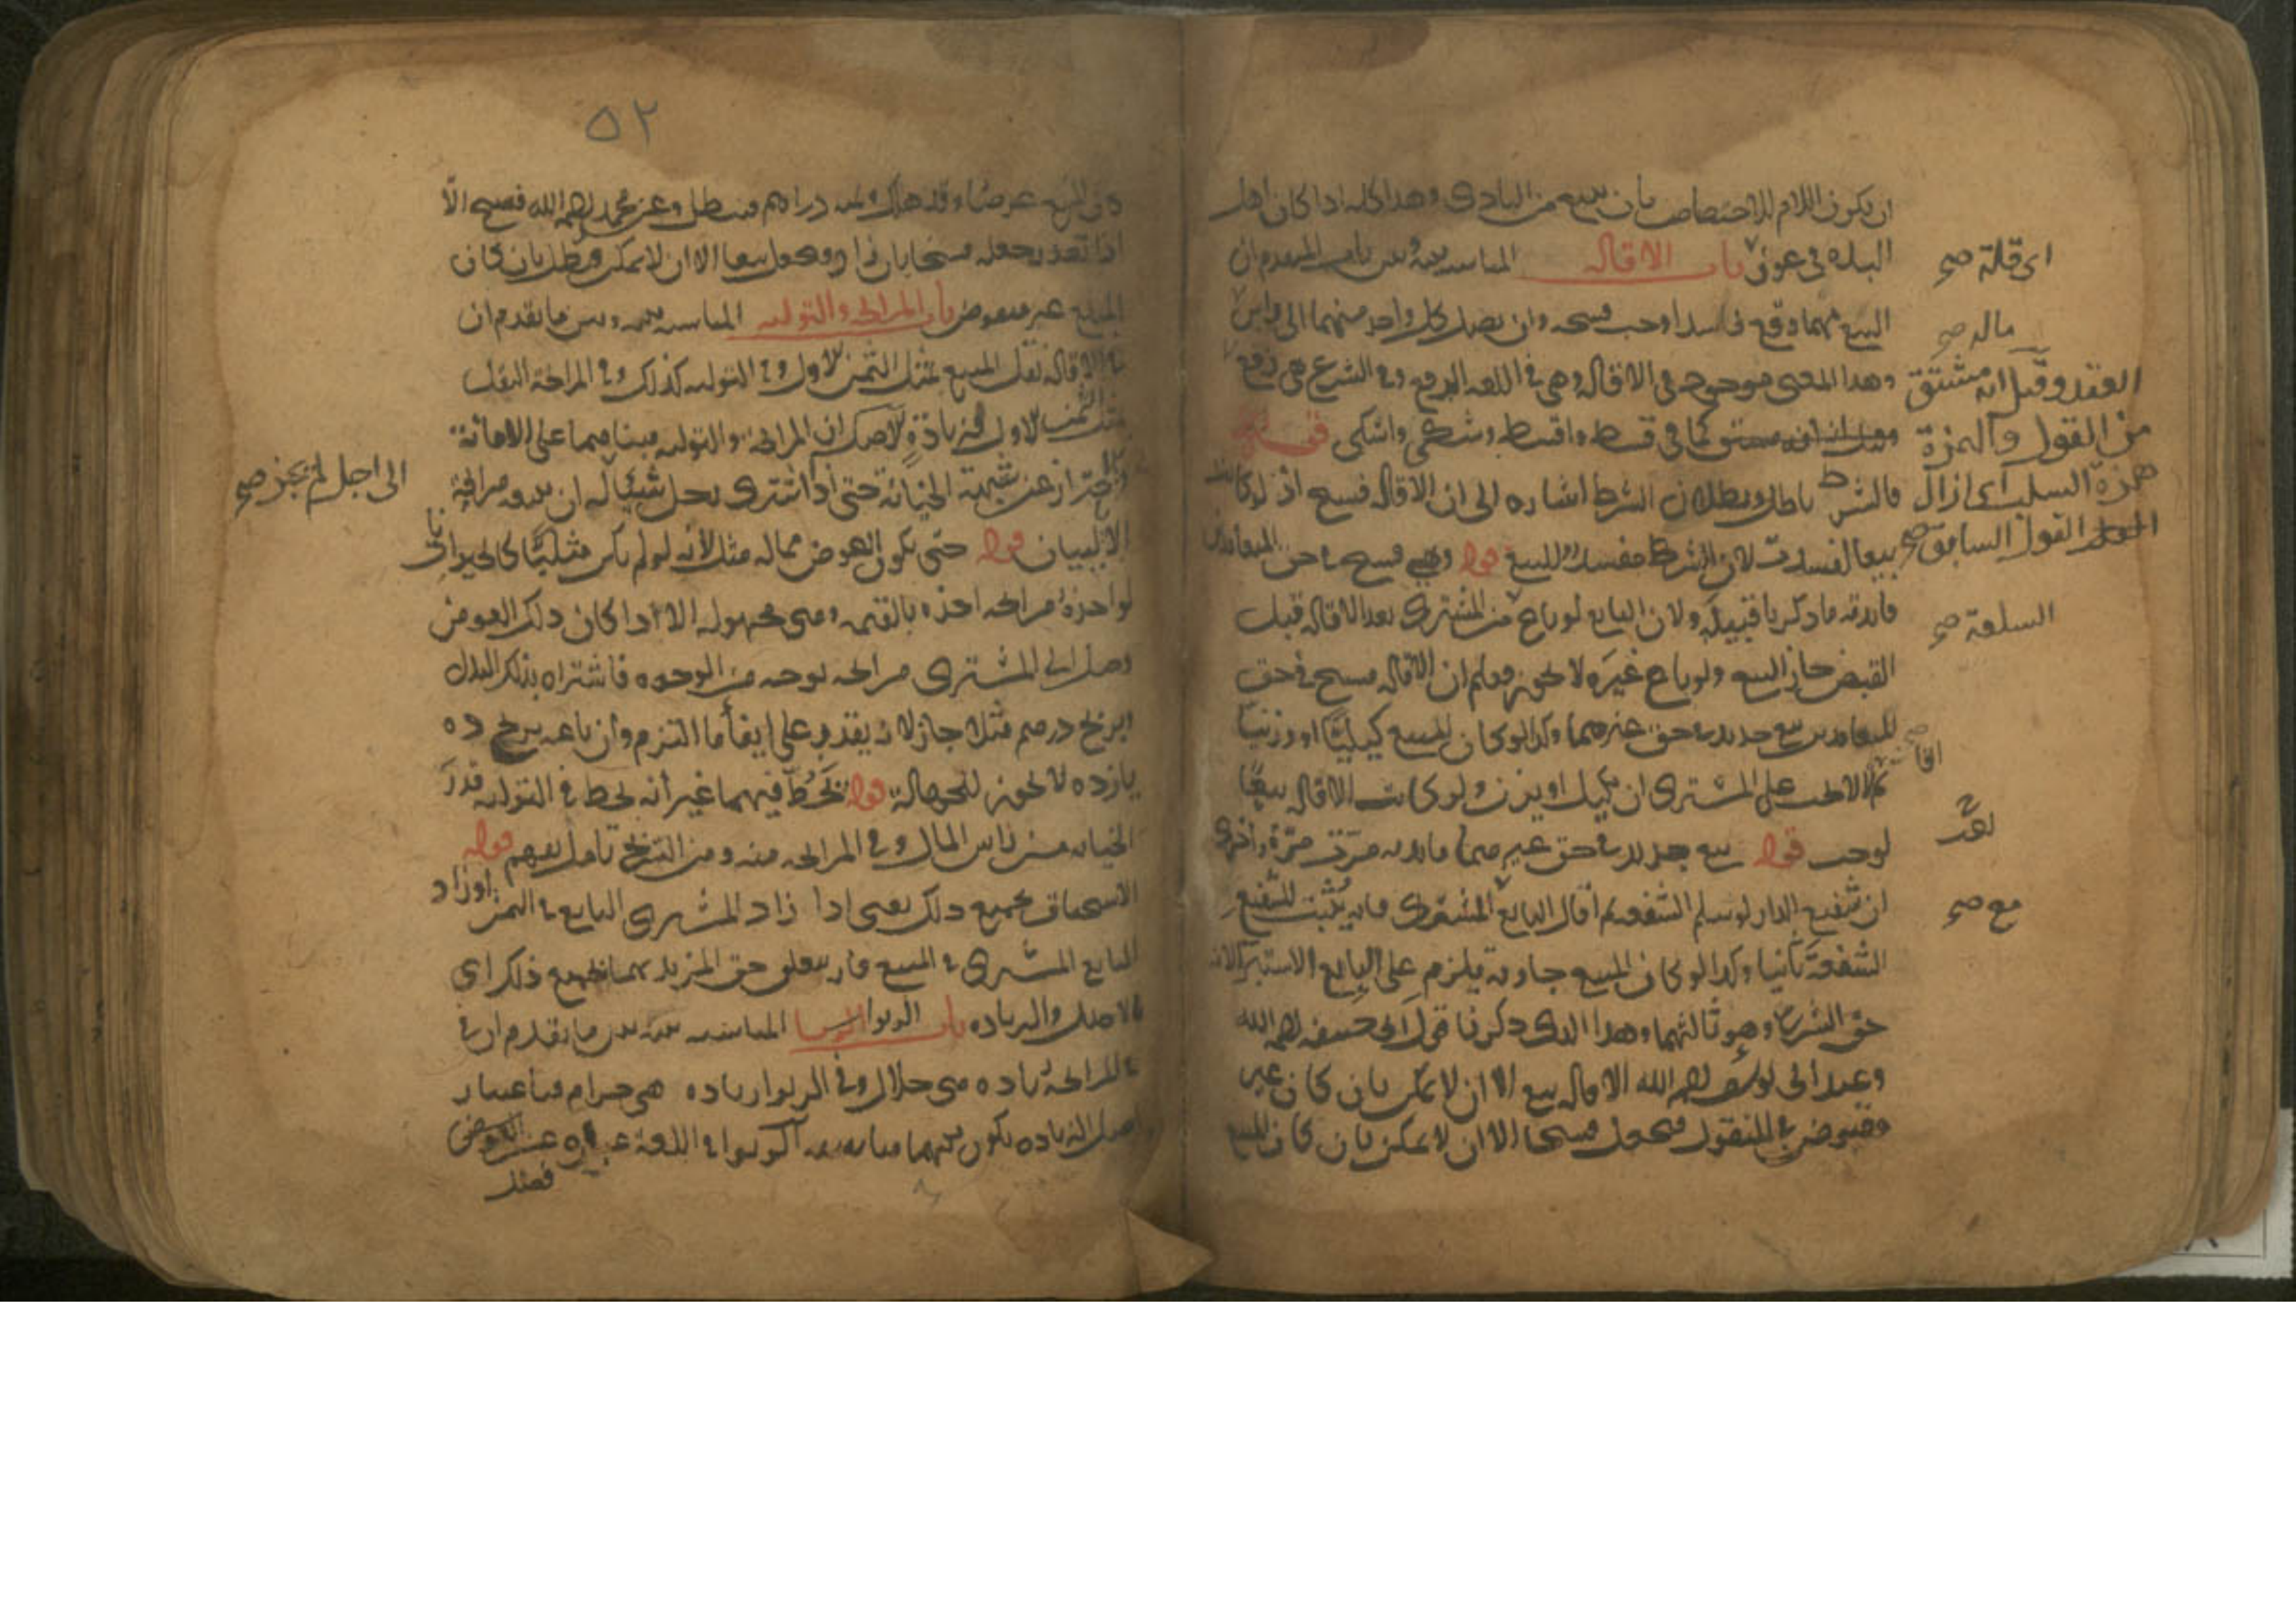 ان يكون اللام للاختصاص بان يبيع من البادى وهذا كله اذا كان اهل
البلده فى عوز باب الاقاله المناسبة بينه وبين باب المتقدم ان
اى قلة صح
البيع مهما وقع فاسدا وجب فسخه وان يصل كل واحد منهما الى راس
ماله صح
وهذا المعنى موجود فى الاقاله وهى فى اللغه الرفع وفى الشرع هى رفع
العقد وقيل انه مشتق
من القول والهمزة
كما فى قسط واقسط وشكى واشكى قوله
همزة السلب اى ازال
القول السابق صح
فالشرط باطل وبطلان الشرط اشاره الى ان الاقاله فسخ اذ لو كانت
بيعا لفسدت لان الشرط مفسد للبيع قوله وهى فسخ فى حق المتعاقدين
فايدته ما ذكر يا قبيله ولان البايع لو باع من المشترى بعد الاقاله قبل
السلعة صح
القبض جاز البيع ولو باع غيره لا يجوز فعلم ان الاقاله فسخ فى حق
المتعاقدين بيع جديد فى حق غيرهما وكذا لو كان المبيع كيليا او وزنيا
لا يجب على المشترى ان يكيل او يزن ولو كانت الاقاله بيعا
لوجب قوله بيع جديد فى حق غيرهما فايدته مرت مرة واخرى
ان شفيع الدار لو سلم الشفعه ثم اقال البايع المشترى فانه يثبت للشفيع
مع صح
الشفعة ثانيا وكذا لو كان المبيع جارية يلزم على البايع الاستبرا لانه
حق الشرع وهو ثالثهما وهذا الذى ذكرنا قول ابى حنيفه رحمه الله
وعند ابى يوسف رحمه الله الاقاله بيع الا ان لا يمكن بان كان غير
مقبوض فى المنقول فيجعل فسخا الا ان لا يمكن بان كان المبيع
٥٢
عرضا وقد هلك دراهم فتبطل وعن محمد رحمه الله فسخ الا
اذا تعذر جعله فسخا بان زاد فيجعل بيعا الا ان لا يمكن فتبطل بان كان
المبيع غير مقبوض باب المرابحه والتوليه المناسبه بينه وبين ما تقدم ان
فى الاقاله نقل المبيع بمثل الثمن الاول وفى التوليه كذلك وفى المرابحة النقل
بمثل الثمن الاول مع زيادة لاصل ان المرابحة والتوليه مبناهما على الامانة
والاحتراز عن شبهة الخيانة حتى اذا اشترى رجل شيئا له ان يبيعه مرابحة
الى اجل لم يجز صح
الا ببيان قوله حتى يكون العوض مما له مثل لانه لو لم يكن مثليا كالحيوانات
لو اخذه مرابحه اخذه بالقيمه وهى مجهوله الا اذا كان ذلك العوض
وصل الى المشترى مرابحه بوجه من الوجوه فاشتراه بذلك البدل
وبربح درهم مثلا جاز لانه يقدر على ايفا ما التزم وان باعه بربح ده
يازده لا يجوز للجهالة قوله يحط فيهما غير انه يحط فى التوليه قدر
الخيانه من راس المال وفى المرابحه منه ومن الربح تامل يفهم قوله
الاستحقاق بجميع ذلك يعنى اذا زاد المشترى البايع فى الثمن او زاد
البايع المشترى فى المبيع فان يتعلق حق المزيد بجميع ذلك اى
الاصل والزياده باب الربوا المناسبه بينه وبين ما تقدم ان فى
المرابحه زياده هى حلال وفى الربوا زياده هى حرام فباعتبار
اصل الزياده يكون بينهما مناسبه الربوا فى اللغة عباره عن
فضل